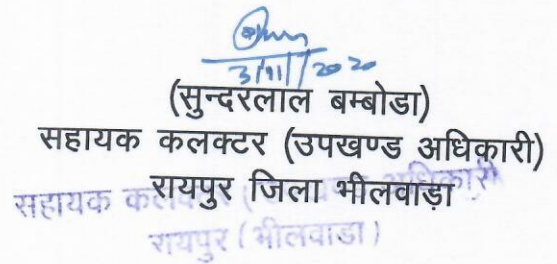 3/11/2020
(सुन्दरलाल बम्बोडा)
सहायक कलक्टर (उपखण्ड अधिकारी)
रायपुर जिला भीलवाड़ा
सहायक अधिकारी
रायपुर (भीलवाडा)